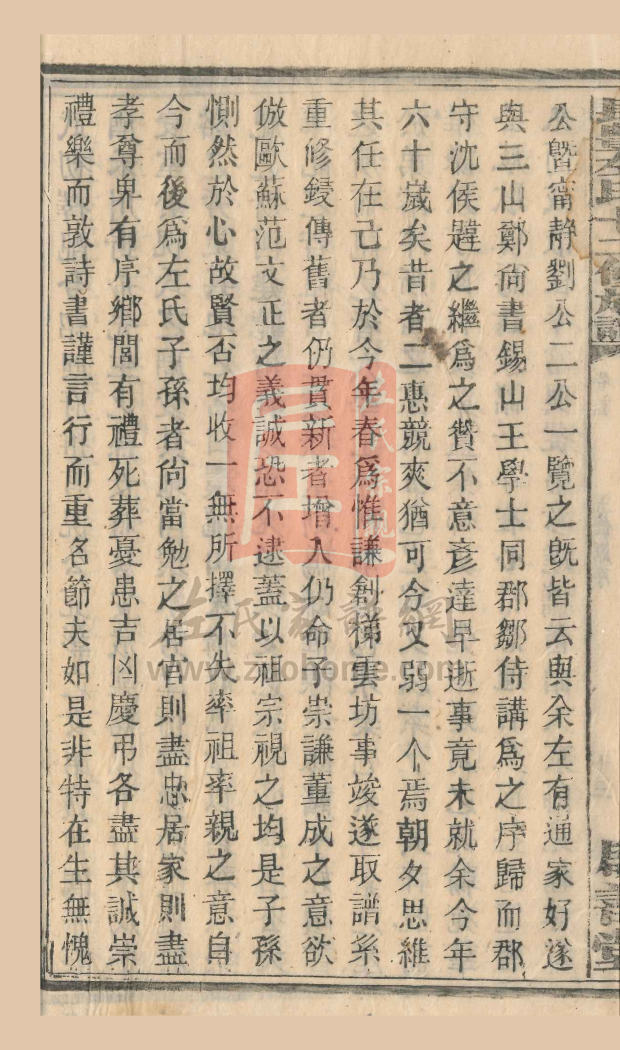 公暨甯靜劉公二公一覽之旣皆云與余左有通家好遂
與三山鄭尙書錫山王學士同郡鄒侍講爲之序歸而郡
守沈侯韙之繼爲之贊不意彥達早逝事竟未就余今年
六十歲矣昔者二惠競爽猶可今又弱一个焉朝夕思維
其任在己乃於今年春爲惟謙創梯雲坊事竣遂取譜系
重修鋟傳舊者仍貫新者增入仍命子崇謙董成之意欲
倣歐蘇范文正之義誠恐不逮蓋以祖宗視之均是子孫
惻然於心故賢否均收一無所擇不失率祖率親之意自
今而後爲左氏子孫者尙當勉之居官則盡忠居家則盡
孝尊卑有序鄉閭有禮死葬憂患吉凶慶弔各盡其誠崇
禮樂而敦詩書謹言行而重名節夫如是非特在生無愧
左氏宗親
左氏族譜網